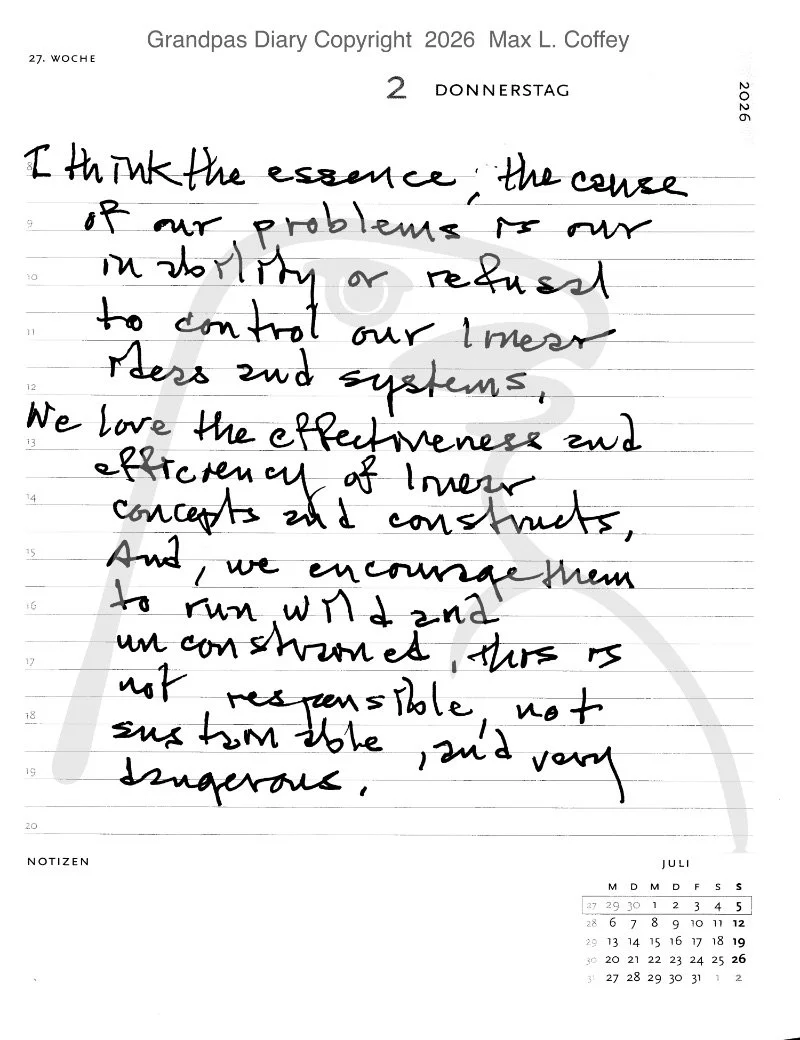 Grandpas Diary Copyright 2026 Max L. Coffey
27. WOCHE
2 DONNERSTAG
2026
8
I think the essence, the cause
9
of our problems is our
10
inability or refusal
11
to control our linear
ideas and systems.
12
We love the effectiveness and
13
efficiency of linear
14
concepts and constructs,
15
And, we encourage them
16
to run wild and
unconstrained, this is
17
not responsible, not
18
sustainable, and very
19
dangerous.
20
NOTIZEN
JULI
M D M D F S S
27 29 30 1 2 3 4 5
28 6 7 8 9 10 11 12
29 13 14 15 16 17 18 19
30 20 21 22 23 24 25 26
31 27 28 29 30 31 1 2